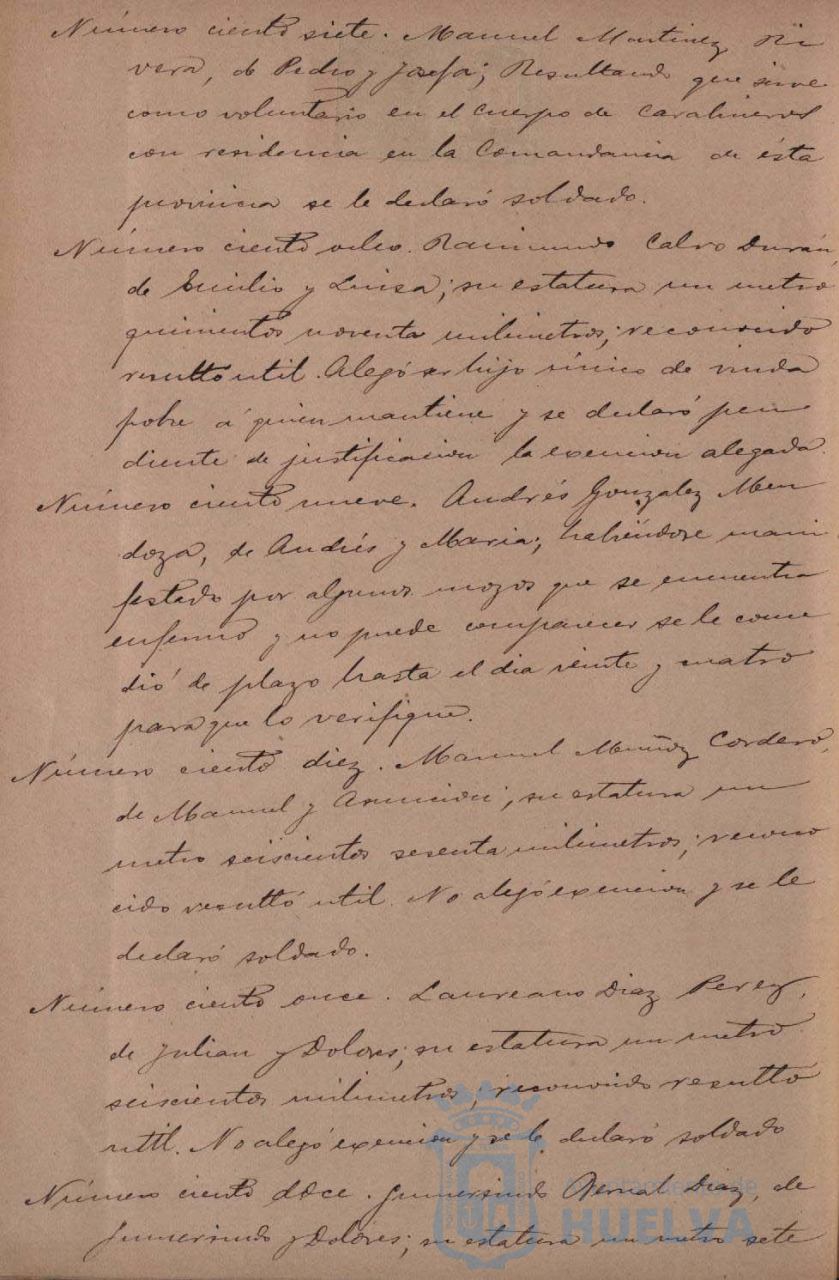 Número ciento siete. Manuel Martinez Ri
vera, de Pedro y Josefa; Resultando que sirve
como voluntario en el cuerpo de Carabineros
con residencia en la Comandancia de ésta
provincia se le declaró soldado.
Número ciento ocho. Raimundo Calvo Durán,
de Emilio y Luisa; su estatura un metro
quinientos noventa milimetros; reconocido
resultó util. Alegó ser hijo único de viuda
pobre á quien mantiene y se declaró pen
diente de justificacion la exencion alegada.
Número ciento nueve. Andrés Gonzalez Men
doza, de Andrés y Maria; habiéndose mani
festado por algunos mozos que se encuentra
enfermo y no puede comparecer se le conce
dió de plazo hasta el dia veinte y cuatro
para que lo verifique.
Número ciento diez. Manuel Muñoz Cordero,
de Manuel y Asuncion; su estatura un
metro seiscientos sesenta milimetros; recono
cido resultó util. No alegó exencion y se le
declaró soldado.
Número ciento once. Laureano Diaz Perez,
de Julian y Dolores; su estatura un metro
seiscientos milimetros; reconocido resultó
util. No alegó exencion y se le declaró soldado
Número ciento doce. Gumersindo Bernal Diaz, de
Gumersindo y Dolores; su estatura un metro sete
Ayuntamiento de
HUELVA